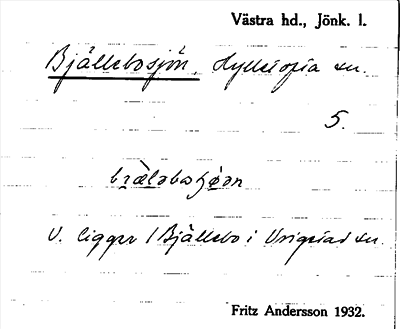 Västra hd., Jönk. l.
Bjällebosjön, Hylletofta sn.
5.
V. ligger i Bjällebo i Vrigstad sn.
Fritz Andersson 1932.